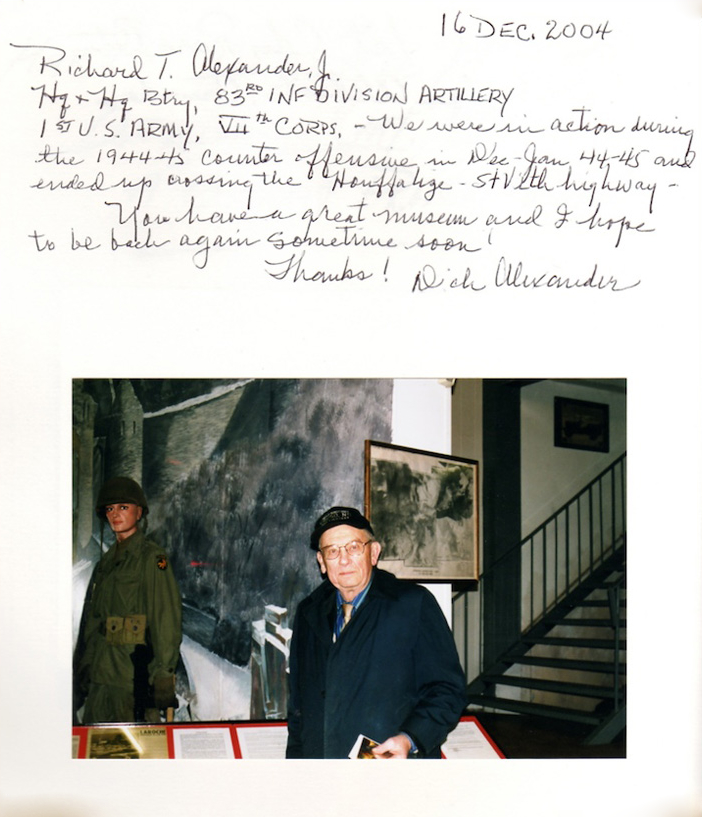 16 DEC. 2004
Richard T. Alexander, Jr.
Hq + Hq Btry, 83RD INF DIVISION ARTILLERY
1ST U.S. ARMY, VIIth CORPS. - We were in action during
the 1944-45 counter offensive in Dec-Jan, 44-45 and
ended up crossing the Houffalize - St Vith highway -
You have a great museum and I hope
to be back again sometime soon!
Thanks! Dick Alexander
LAROCHE